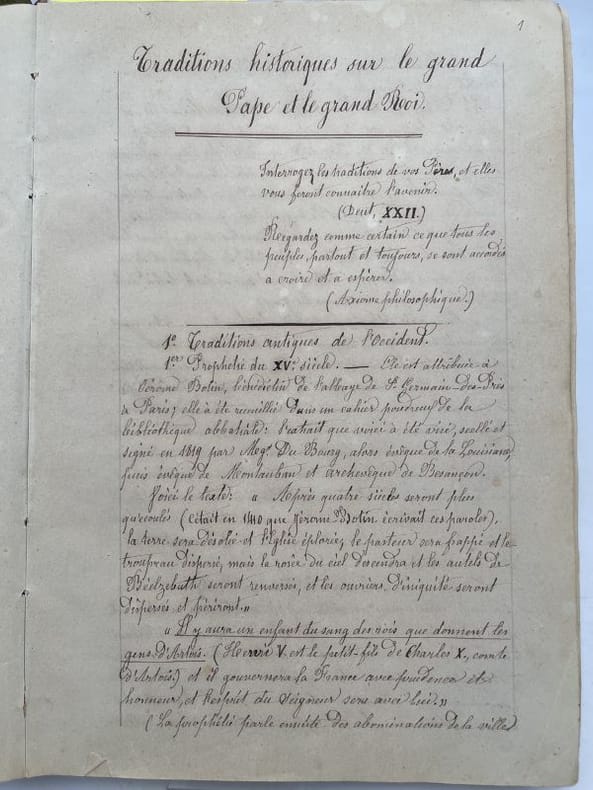 1
Traditions historiques sur le grand
Pape et le grand Roi.
Interrogez les traditions de vos Pères, et elles
vous feront connaitre l'avenir.
(Deut, XXII.)
Regardez comme certain ce que tous les
peuples, partout et toujours, se sont accordés
a croire et a espérer.
(Axiome philosophique.)
1º Traditions antiques de l'Occident.
1er Prophétie du XVe siècle. — Elle est attribuée à
Jérome Botin, bénédictin de l'abbaye de St Germain-des-Prés
à Paris; elle a été recueillie dans un cahier poudreux de la
bibliothèque abbatiale: l'extrait que voici a été visé, scellé et
signé en 1819 par Mgr. Du Bourg, alors évêque de la Louisiane,
puis évêque de Montauban et archevêque de Besançon.
Voici le texte: « Après quatre siècles seront plus
qu'écoulés (c'était en 1410 que Jérome Botin écrivait ces paroles),
la terre sera désolée et l'Eglise éplorée; le pasteur sera frappé et le
troupeau dispersé, mais la rosée du ciel descendra et les autels de
Béelzebuth seront renversés, et les ouvriers d'iniquité seront
dispersés et périront.»
« Il y aura un enfant du sang des rois que donnent les
gens d'Artois. (Henri V est le petit-fils de Charles X, comte
d'Artois.) et il gouvernera la France avec prudence et
honneur, et l'esprit du Seigneur sera avec lui.»
(La prophétie parle ensuite des abominations de la ville